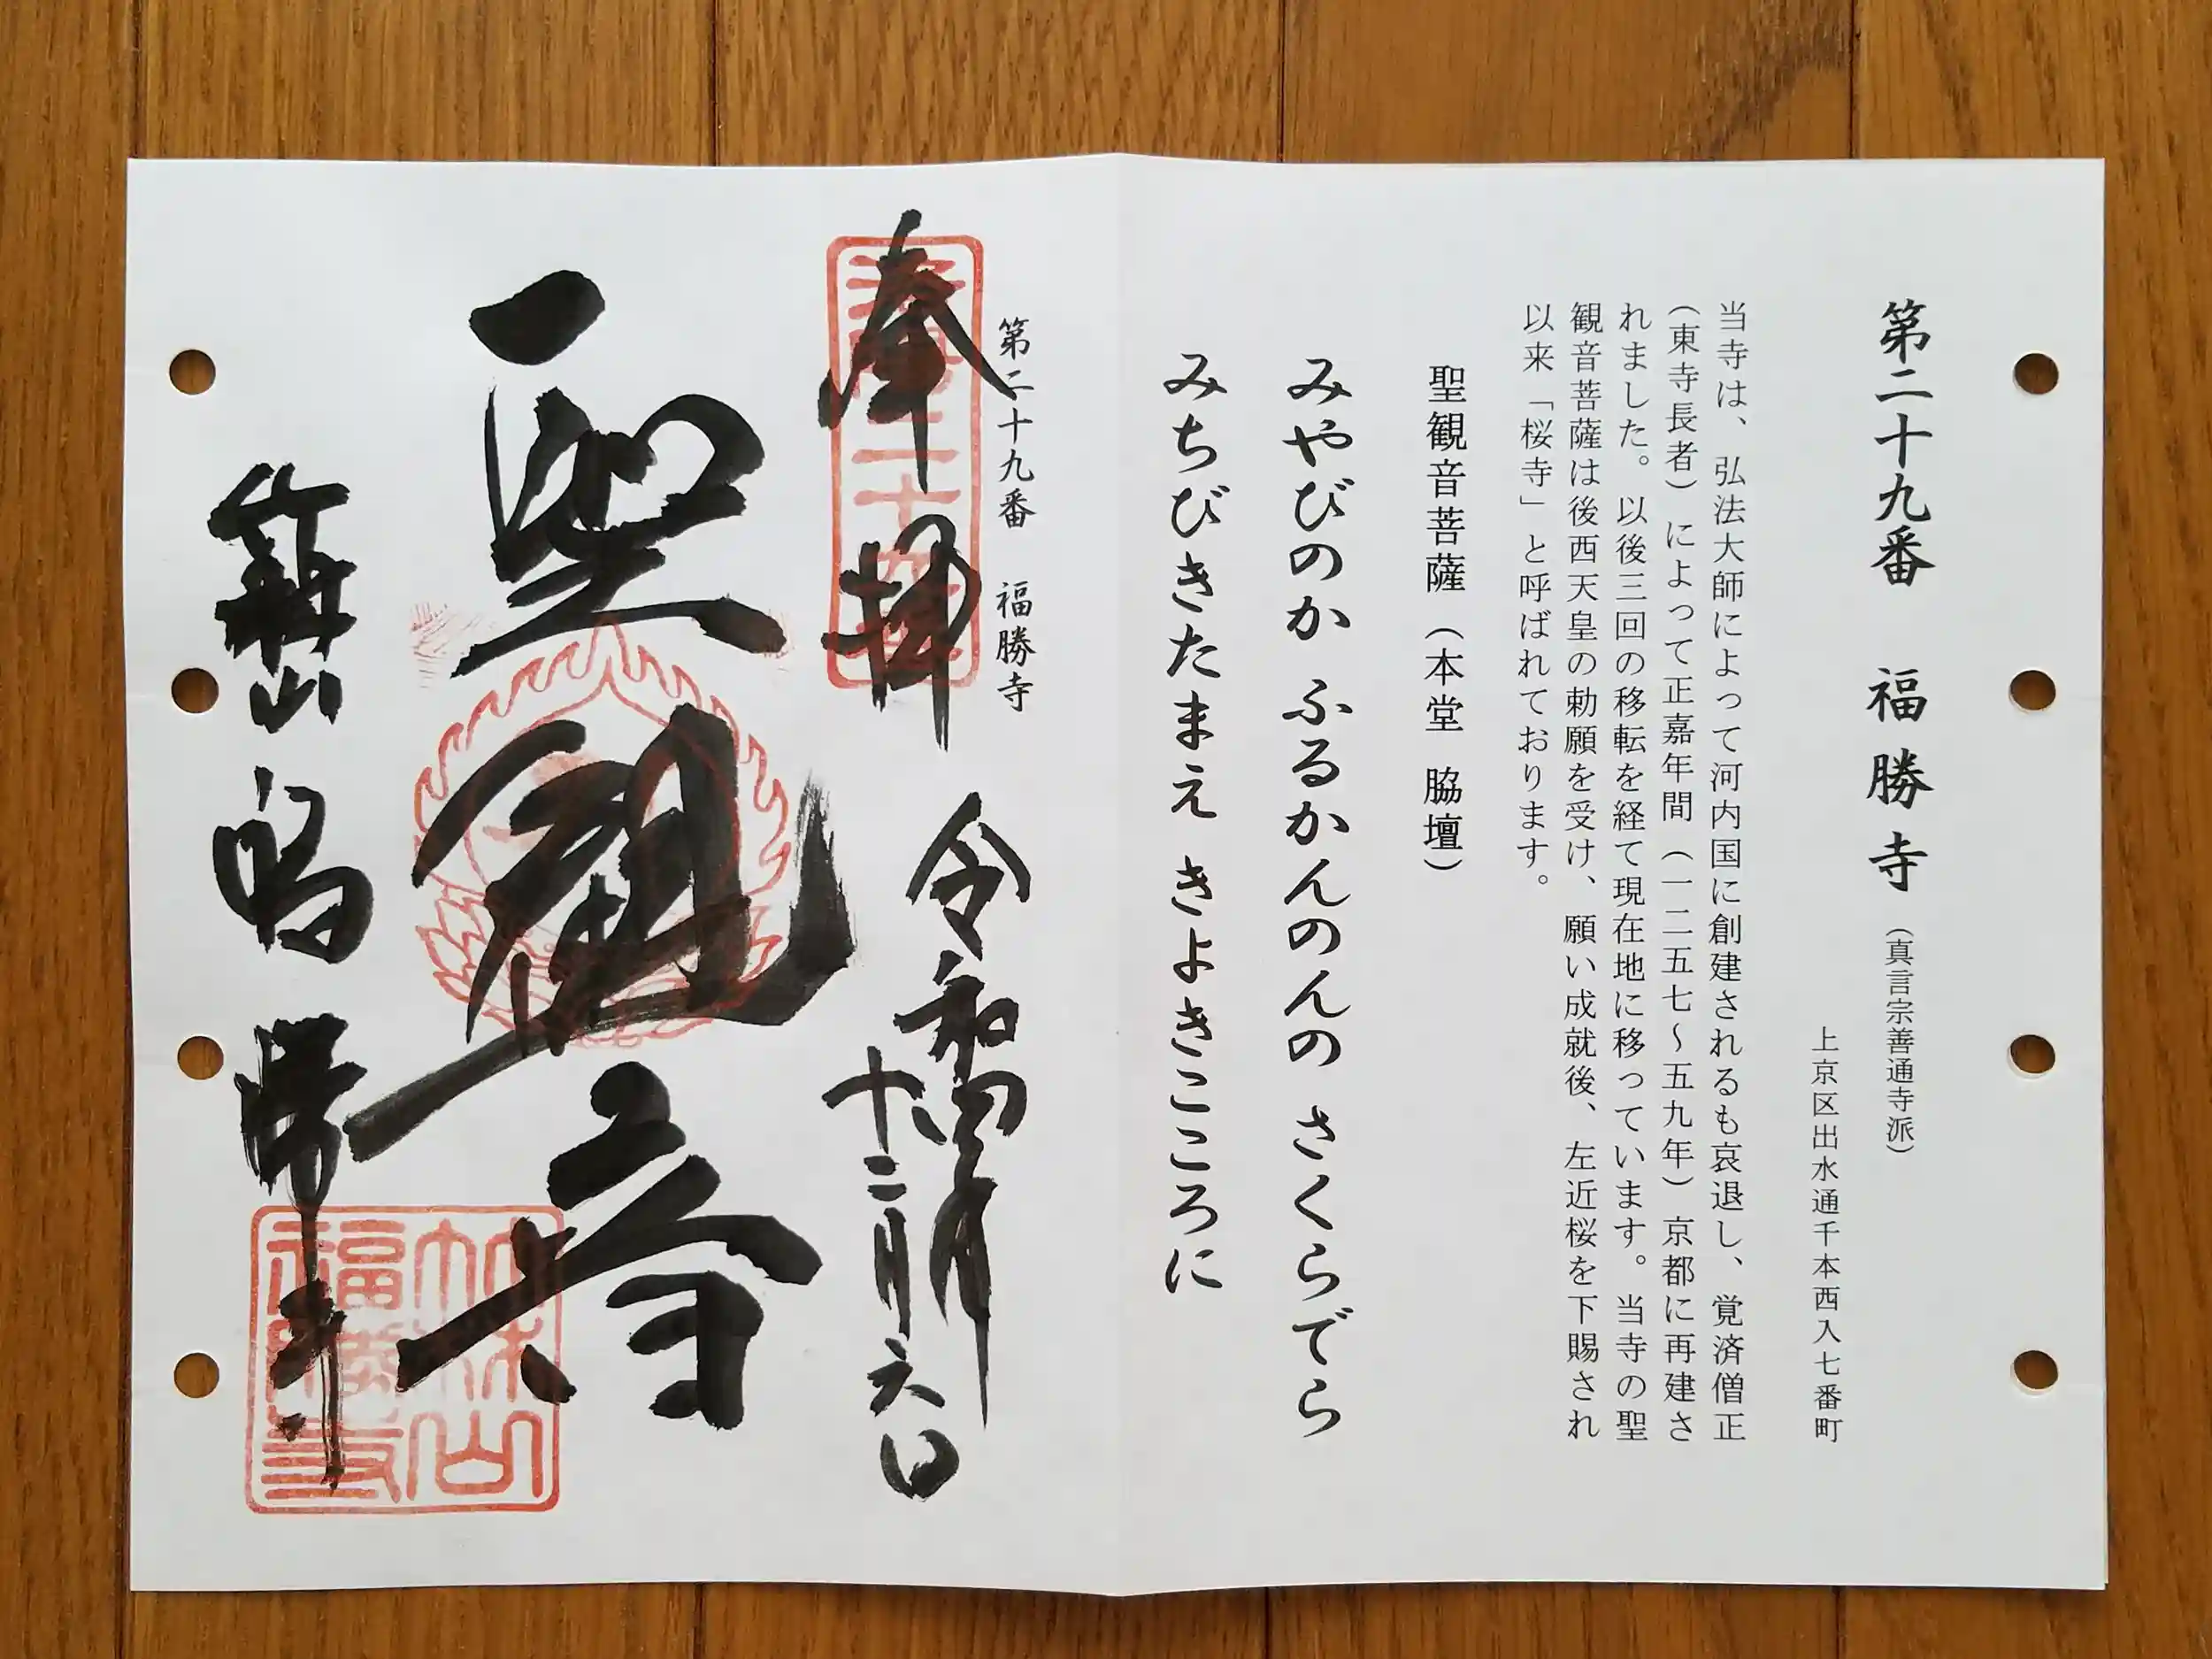 第二十九番 福勝寺(真言宗善通寺派)
上京区出水通千本西入七番町
当寺は、弘法大師によって河内国に創建されるも哀退し、覚済僧正
(東寺長者)によって正嘉年間(一二五七〜五九年)京都に再建さ
れました。以後三回の移転を経て現在地に移っています。当寺の聖
観音菩薩は後西天皇の勅願を受け、願い成就後、左近桜を下賜され
以来「桜寺」と呼ばれております。
聖観音菩薩(本堂 脇壇)
みやびのか ふるかんのんの さくらでら
みちびきたまえ きよきこころに
第二十九番 福勝寺
奉拝
令和四年
十二月六日
聖観音
竹林山
福勝寺
竹林山
福勝寺